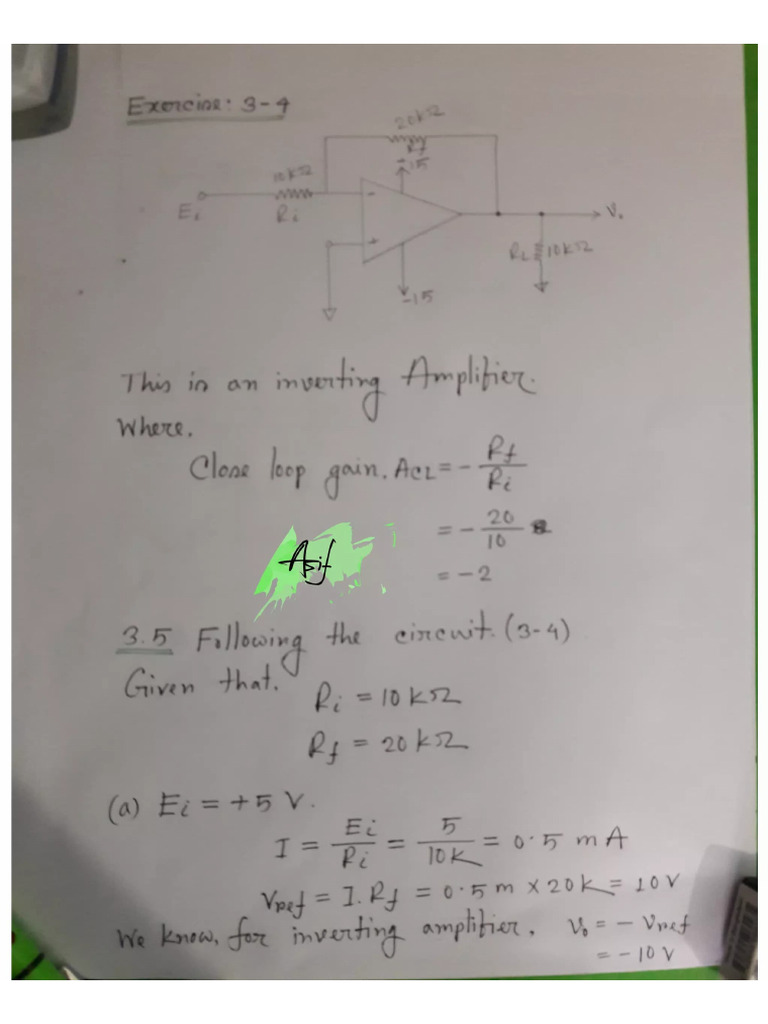 Exercise: 3-4
20kΩ
Rf
-15
10kΩ
Ei
Ri
-
+
Vo
RL 10kΩ
-15
This is an inverting Amplifier.
Where,
Close loop gain, ACL = - Rf/Ri
= - 20/10
= -2
Asif
3.5 Following the circuit. (3-4)
Given that.
Ri = 10kΩ
Rf = 20kΩ
(a) Ei = +5 V.
I = Ei/Ri = 5/10K = 0.5 mA
VRef = I.Rf = 0.5m × 20K = 10V
We know, for inverting amplifier, Vo = - VRef
= -10 V